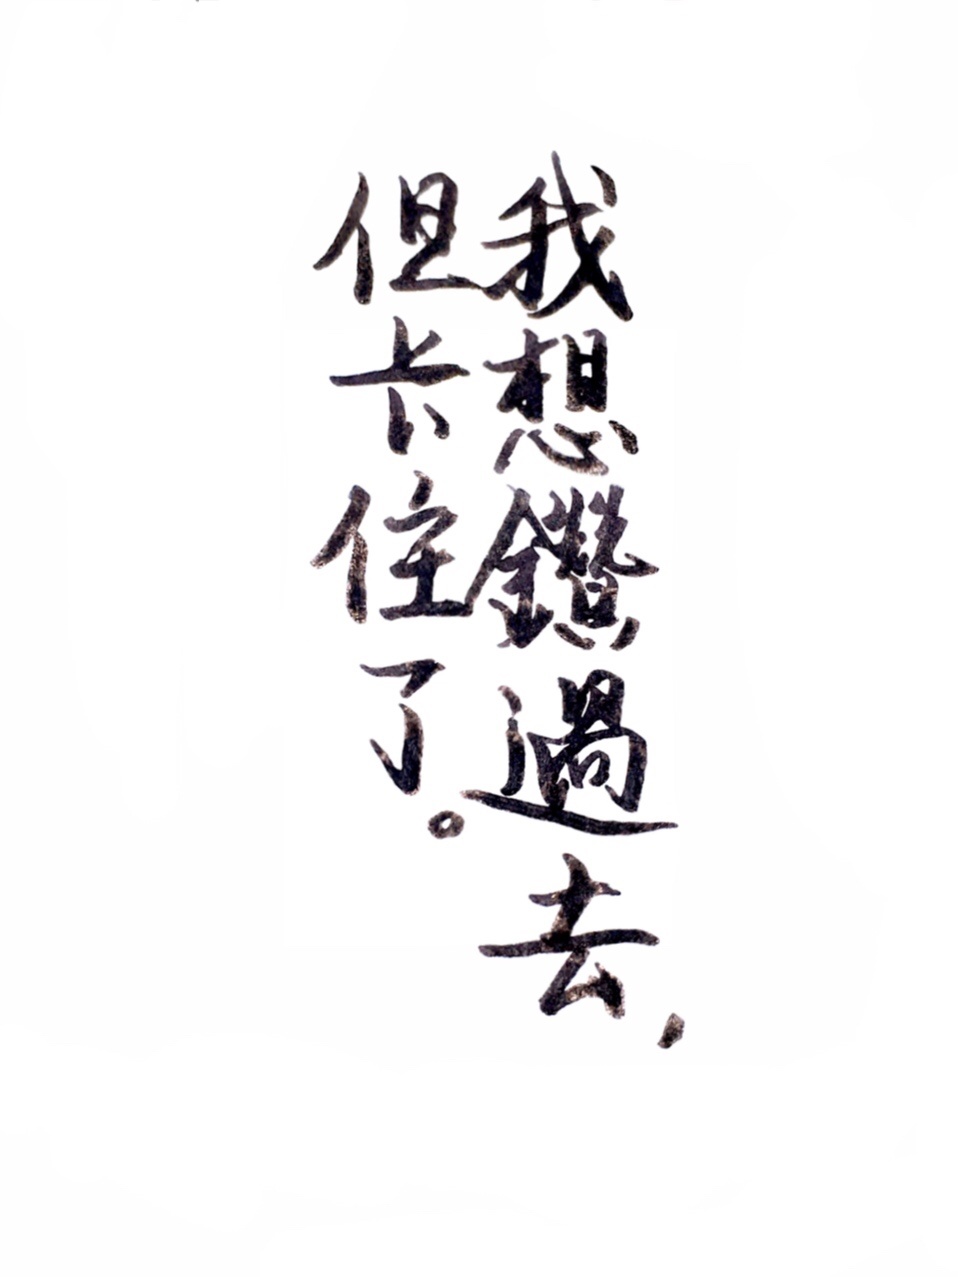 我想鑽過去，
但卡住了。